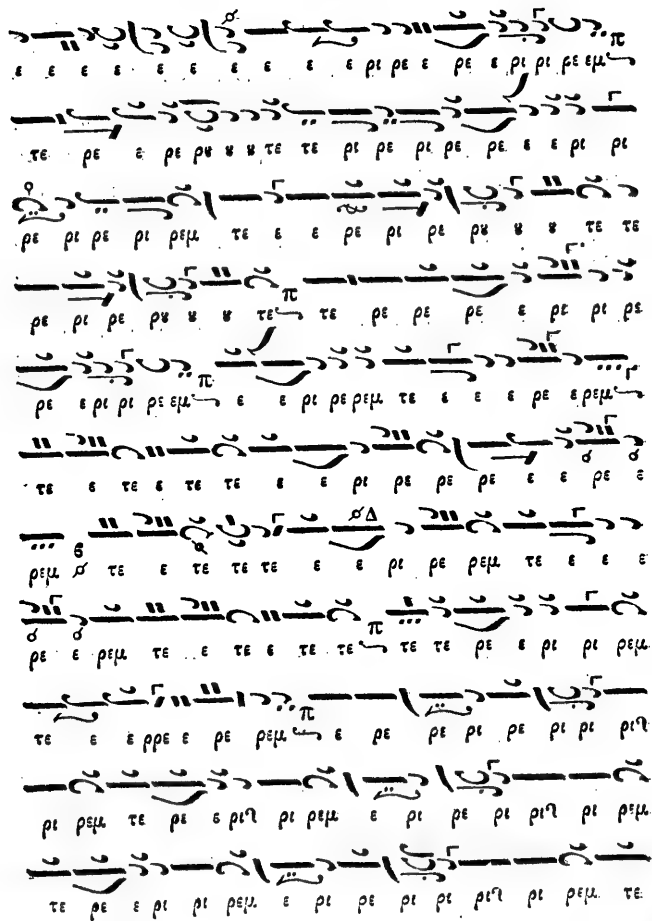 ε ε ε ε ε ε ε ε ε ε ε ρι ρε ε ρε ε ρι ρι ρε εμ
τε ρε ε ρε ρȣ ȣ ȣ τε τε ρι ρε ρι ρε ρε ε ε ρι ρι
ρε ρι ρε ρι ρεμ τε ε ε ρε ρι ρε ρȣ ȣ ȣ τε τε
ρε ρι ρε ρȣ ȣ ȣ τε τε ρε ρε ρε ε ρι ρι ρε
ρε ε ρι ρι ρε εμ ε ε ρι ρε ρεμ τε ε ε ε ρε ε ρεμ
τε ε τε ε τε τε ε ε ρι ρε ρε ρε ε ε ρε ε
ρεμ τε ε τε τε τε ε ε ρι ρε ρεμ τε ε ε ε
ρε ε ρεμ τε ε τε ε τε τε τε τε ρε ε ρι ρι ρεμ
τε ε ε ρρε ε ρε ρεμ ε ρε ρε ρι ρε ρι ρι ριϟ
ρι ρεμ τε ρε ε ριϟ ρι ρεμ ε ρι ρε ρι ριϟ ρι ρεμ
τε ρε ε ρι ρι ρεμ ε ρι ρε ρι ρι ριϟ ρι ρεμ τε